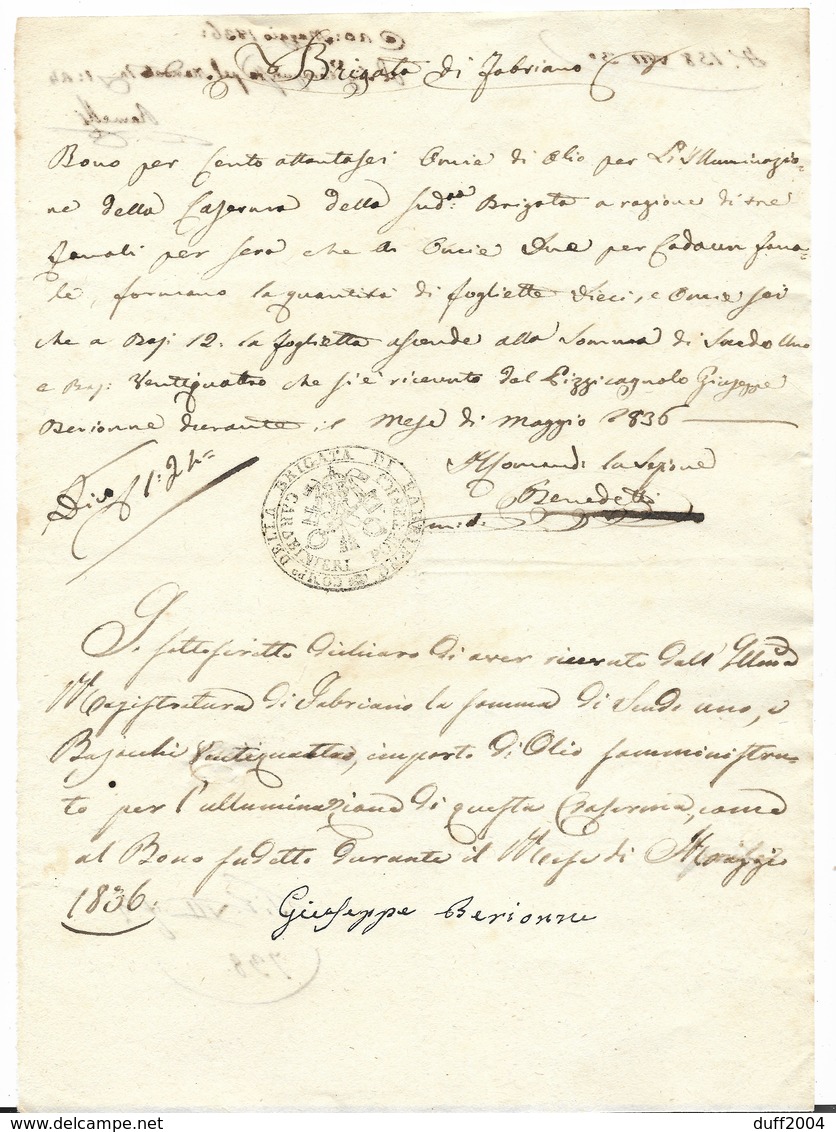 Brigata di Fabriano
Bono per Cento ottantasei Oncie di Olio per L'illuminazio-
ne della Caserma della sud.ta Brigata a ragione di tre
fanali per sera che di Oncie Due per Cadaun fana-
le, formano la quantità di fogliette Dieci, e Oncie sei
che a Baj: 12: la foglietta ascende alla Somma di Scudo Uno
e Baj: Ventiquattro che si è ricevuto dal Pizzicagnolo Giuseppe
Berionne durante il Mese di Maggio 1836
Dico 1: 24
la sezione
Benedetti
DELLA BRIGATA DI
CARABINIERI PONTIFICI
Io sottoscritto dichiaro di aver ricevuto dall'Illma
Magistratura di Fabriano la somma di Scudo uno, e
Bajocchi Ventiquattro, importo di Olio somministra-
to per l'illuminazione di questa Caserma, come
al Bono sudetto durante il Mese di Maggio
1836.
Giuseppe Berionne
delcampe.net
duff2004